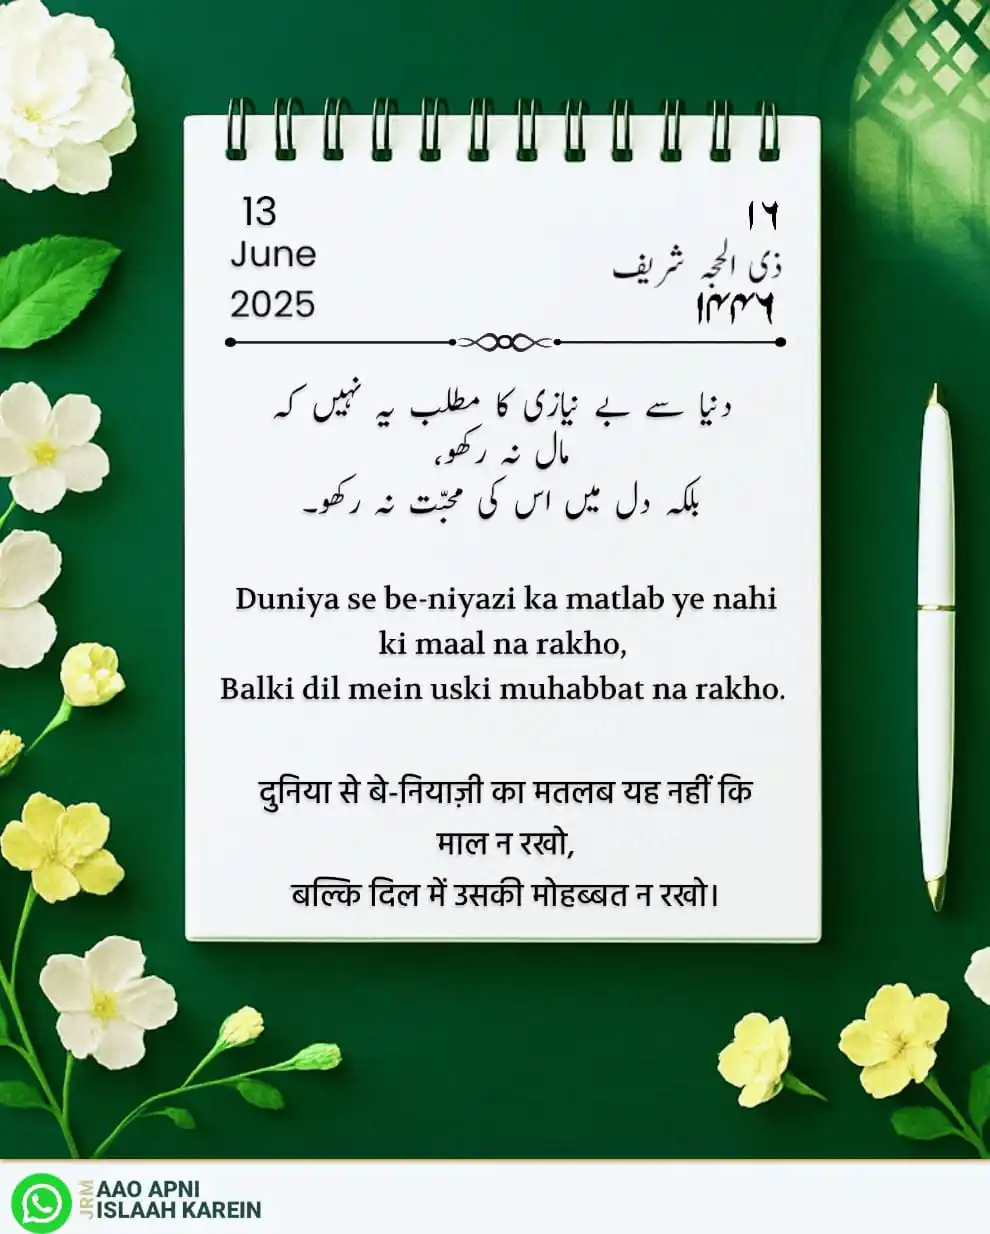 13
June
2025
۱۶
ذی الحجہ شریف
۱۴۴۶
دنیا سے بے نیازی کا مطلب یہ نہیں کہ
مال نہ رکھو،
بلکہ دل میں اس کی محبّت نہ رکھو۔
Duniya se be-niyazi ka matlab ye nahi
ki maal na rakho,
Balki dil mein uski muhabbat na rakho.
दुनिया से बे-नियाज़ी का मतलब यह नहीं कि
माल न रखो,
बल्कि दिल में उसकी मोहब्बत न रखो।
JRM
AAO APNI
ISLAAH KAREIN